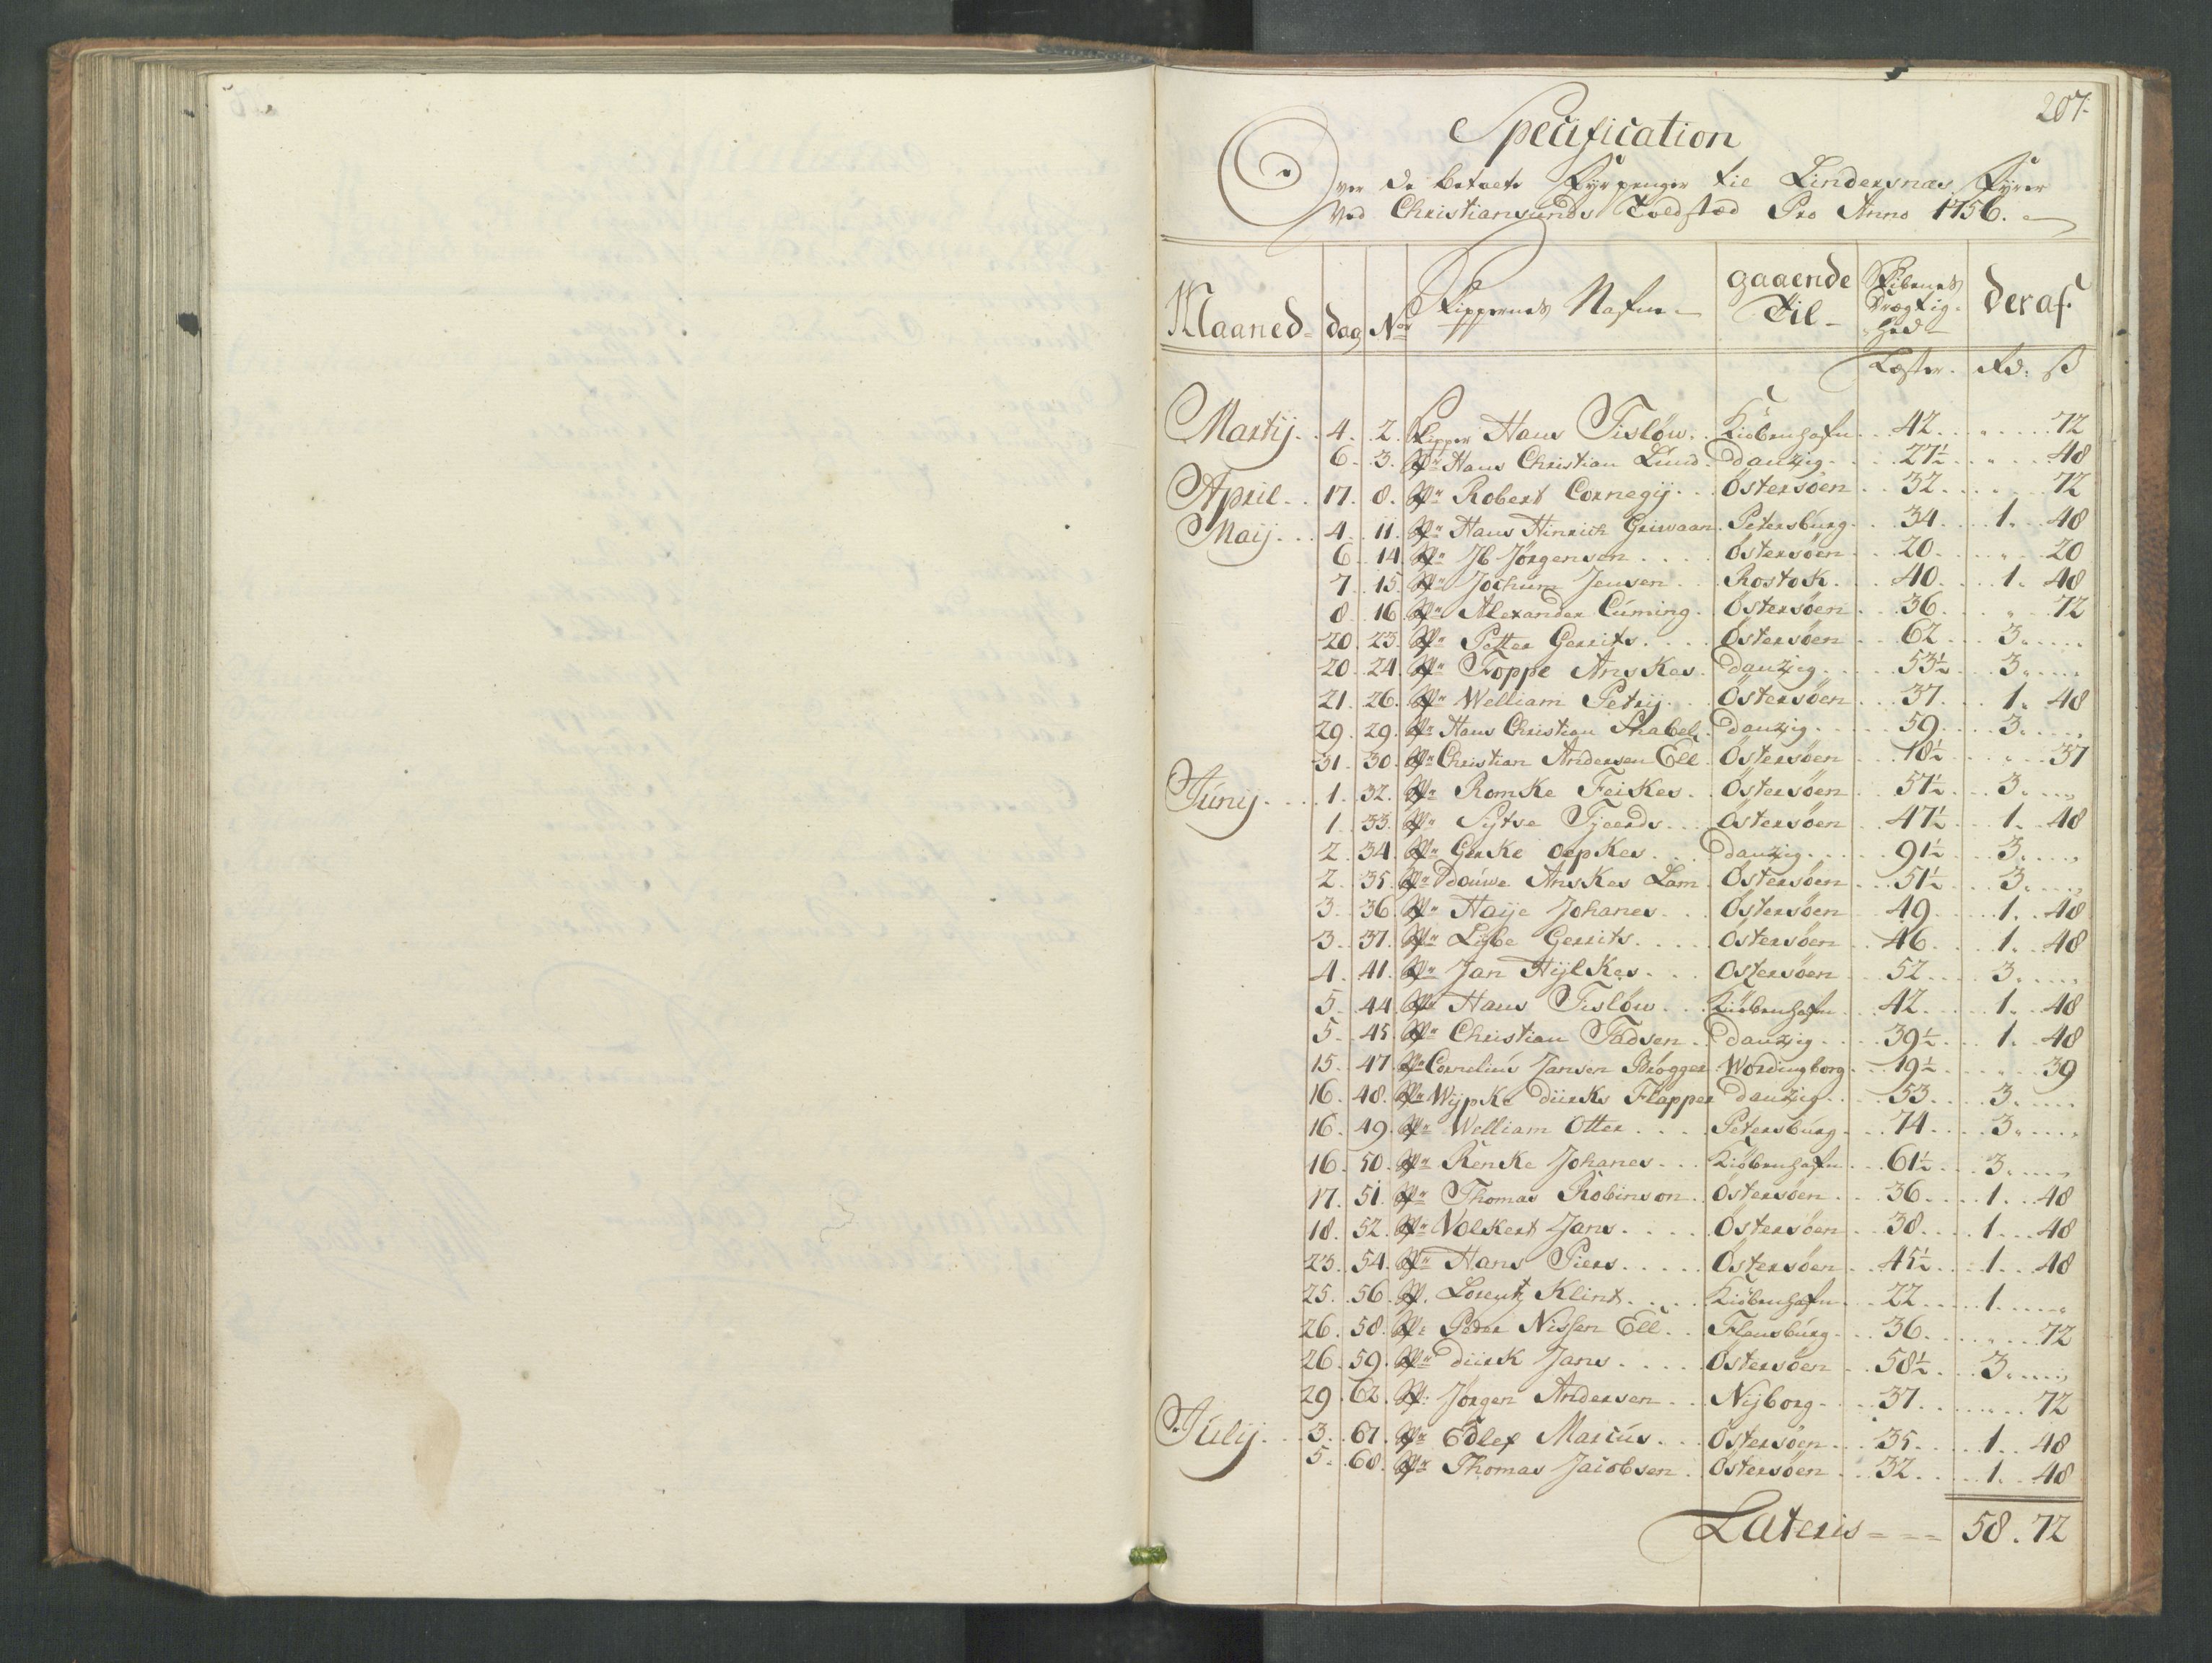 207.
Specification
Over de betalte Fyrpenger til Lindersnæs Fyrer
Ved Christiansunds Toldstæd Pro Anno 1756.
Maaned dag No Skippernes Nafne gaaende Til Skibenes Drægtighed deraf
Læster. Rd: ß
Martij. 4. 2. Skipper Hans Tisløw. Kiöbenhafn 42. 72
6. 3. Dn Hans Christian Lund. danzig. 27½ 48
April. 17. 8. Dn Robert Cornegij. Östersöen 32. 72
Maij. 4. 11. Dn Hans Hinrich Griwaan. Petersburg. 34. 1. 48
6. 14. Dn Jb Jörgensen. Östersöen 20. 20
7. 15. Dn Jochum Jensen. Rostok. 40. 1. 48
8. 16. Dn Alexander Cuming. Östersöen 36. 72
20. 23. Dn Petter Gerrits. Östersöen 62. 3.
20. 24. Dn Foppe Anskes. danzig. 53½ 3.
21. 26. Dn Welliam Petrij. Östersöen 37. 1. 48
29. 29. Dn Hans Christian Stabel. danzig. 59. 3.
31. 30. Dn Christian Andersen Ell. Östersöen 18½ 37
Junij. 1. 32. Dn Romke Feikes. Östersöen 57½ 3.
1. 33. Dn Sytse Tjeerds. Östersöen 47½ 1. 48
2. 34. Dn Gerke Oepkes. danzig. 91½ 3.
2. 35. Dn Douwe Anskes Lam. Östersöen 51½ 3.
3. 36. Dn Haije Johanes. Östersöen 49. 1. 48
3. 37. Dn Lijbe Gerrits. Östersöen 46. 1. 48
4. 41. Dn Jan Hijlkes. Östersöen 52. 3.
5. 44. Dn Hans Tisløw. Kiöbenhafn 42. 1. 48
5. 45. Dn Christian Fadsen. danzig. 39½ 1. 48
15. 47. Dn Cornelius Jansen Brögger. Wordingborg. 19½ 39
16. 48. Dn Wijpke diirks Flapper danzig. 53. 3.
16. 49. Dn Welliam Otter. Petersburg. 74. 3.
16. 50. Dn Renke Johanes. Kiöbenhafn 61½ 3.
17. 51. Dn Thomas Robinson. Östersöen 36. 1. 48
18. 52. Dn Volkert Jans. Östersöen 38. 1. 48
23. 54. Dn Hans Piers. Östersöen 45½ 1. 48
25. 56. D. Lorentz Klint. Kiöbenhafn 22. 1.
26. 58. D: Peder Nissen Ell. Flensburg. 36. 72
26. 59. Dn diirk Jans. Östersöen 58½ 3.
29. 62. D: Jörgen Andersen. Nijborg. 37. 72
Julij. 3. 67. Dn Edlef Marcus. Östersöen 35. 1. 48
5. 68. Dn Thomas Jacobsen. Östersöen 32. 1. 48
Lateris 58. 72